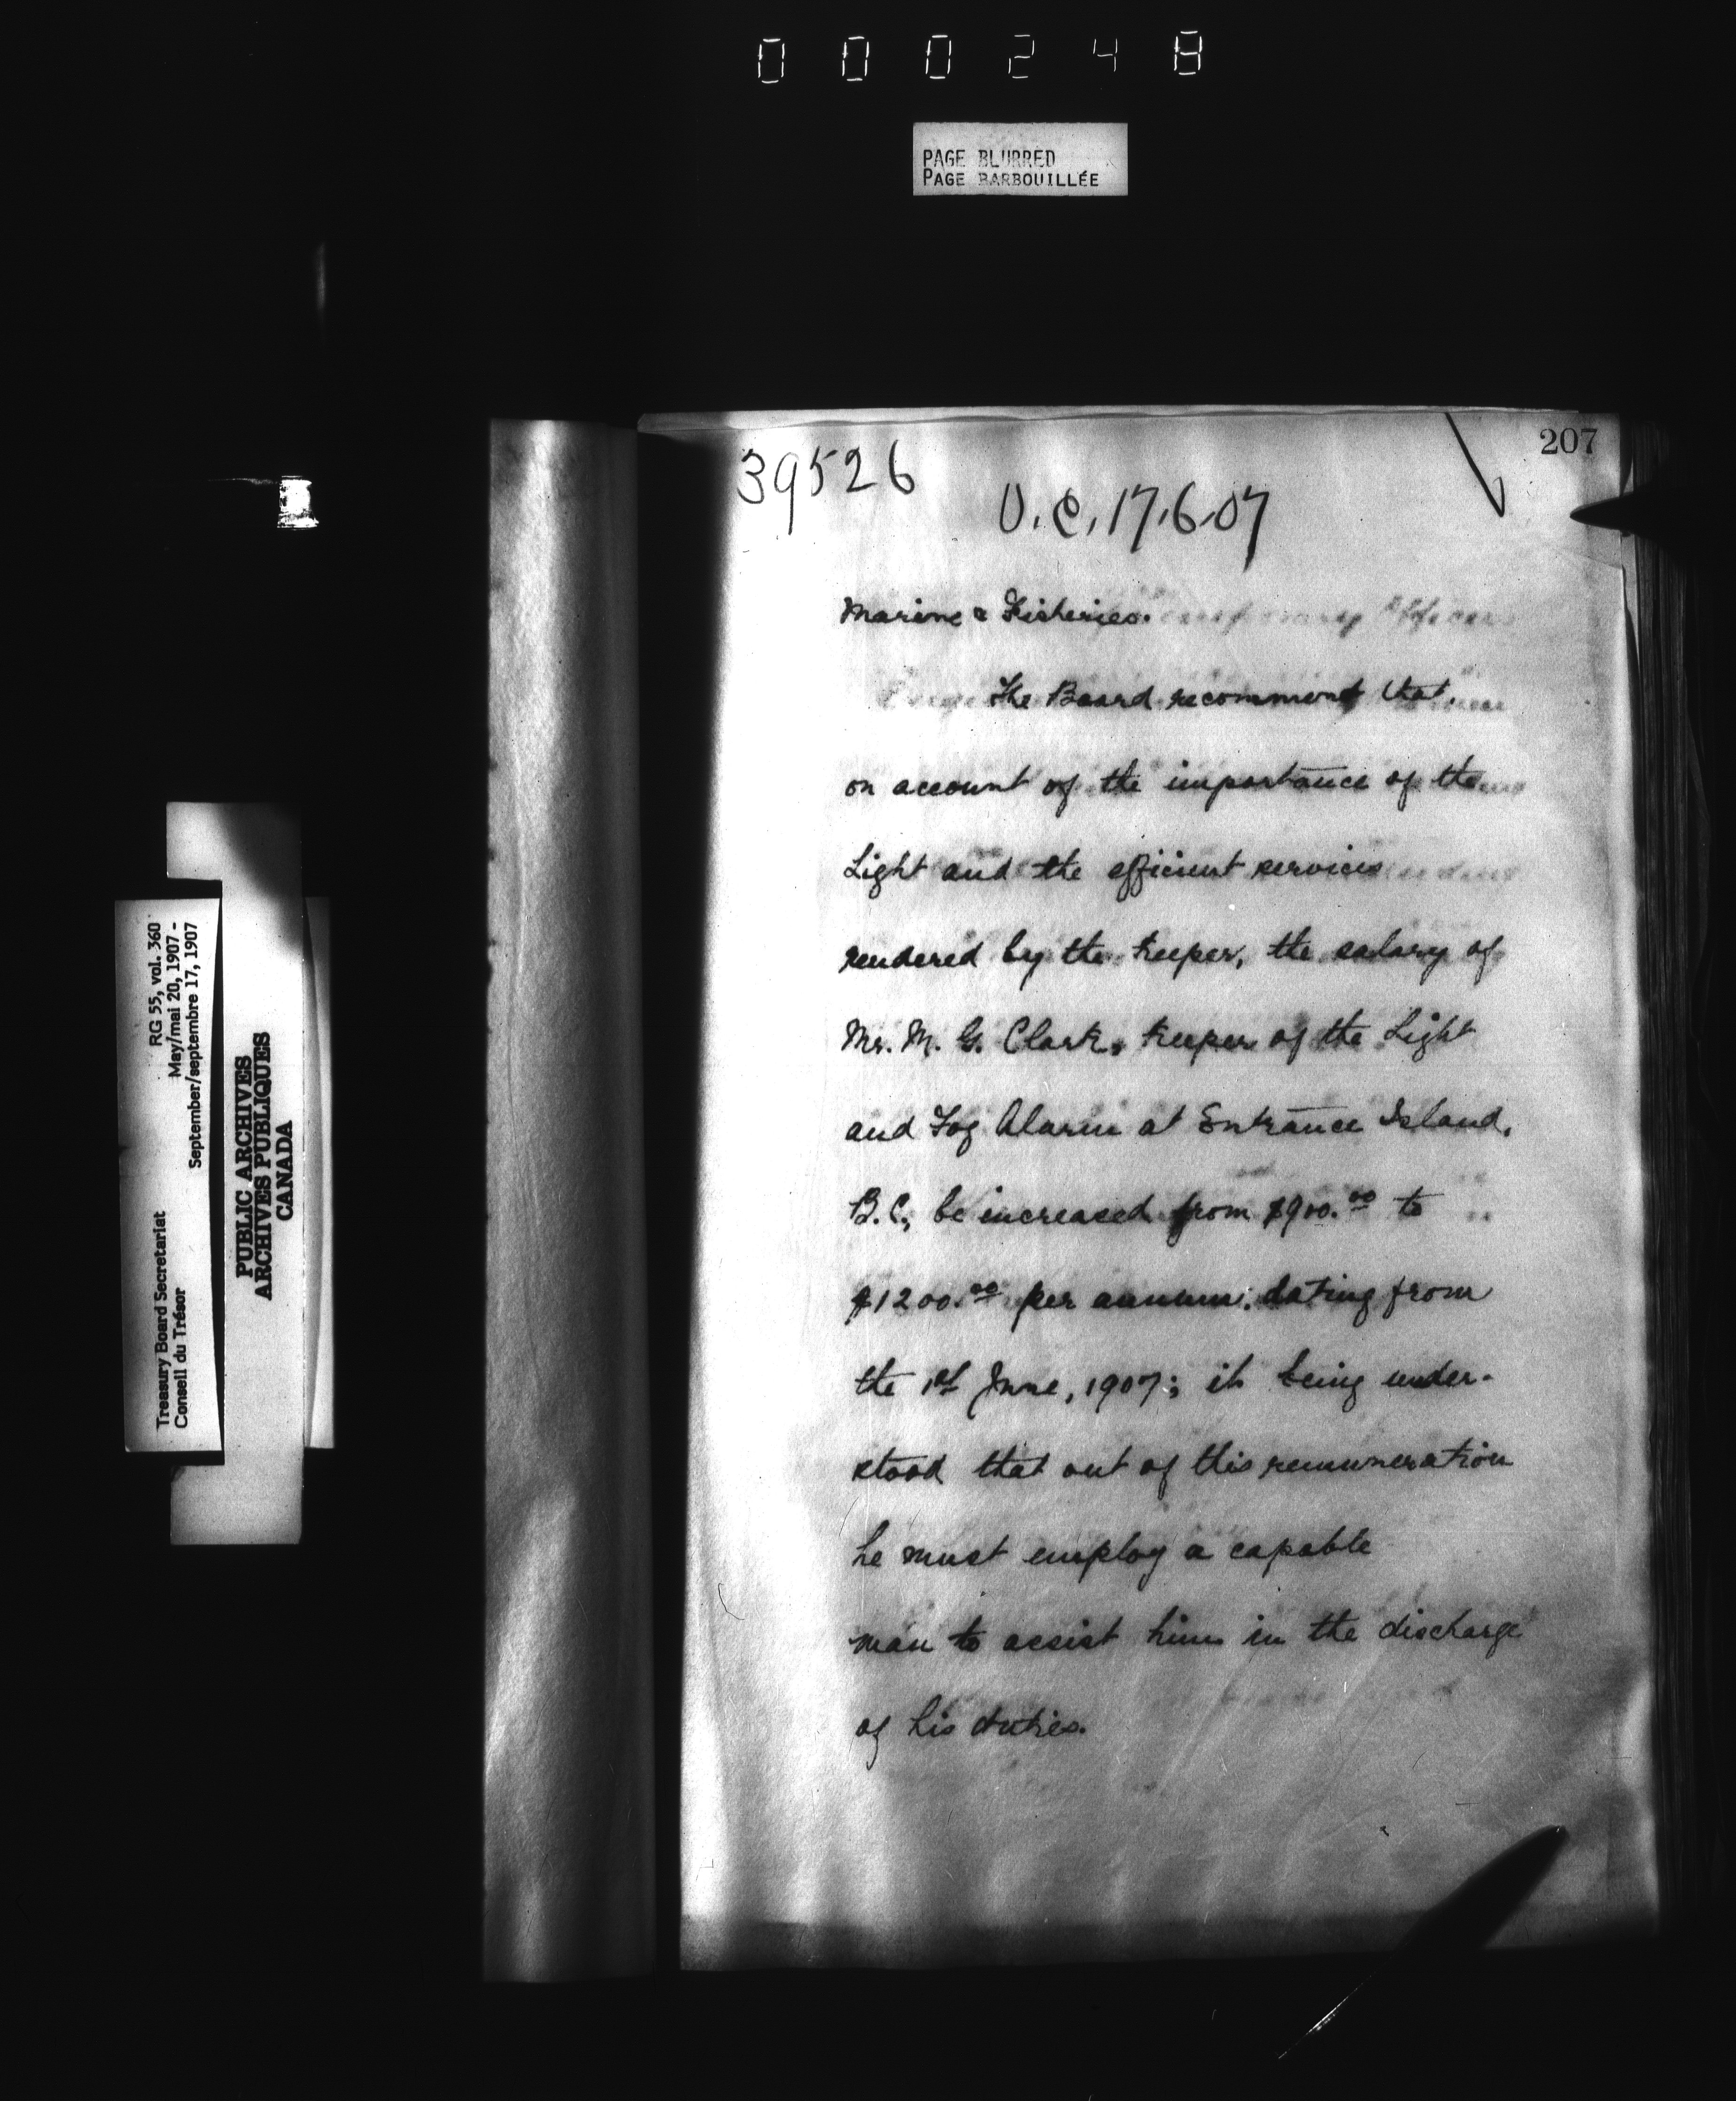 000248
PAGE BLURRED
PAGE BARBOUILLÉE
207
39526
O.C. 17.6.07
Marine & Fisheries.
The Board recommend that,
on account of the importance of the
Light and the efficient services
rendered by the keeper, the salary of
Mr. M. G. Clark, keeper of the Light
and Fog Alarm at Entrance Island,
B.C., be increased from $900.00 to
$1200.00 per annum, dating from
the 1st June, 1907; it being under-
stood that out of this remuneration
he must employ a capable
man to assist him in the discharge
of his duties.
Treasury Board Secretariat
Conseil du Trésor
RG 55, vol. 360
May/mai 20, 1907 -
September/septembre 17, 1907
PUBLIC ARCHIVES
ARCHIVES PUBLIQUES
CANADA